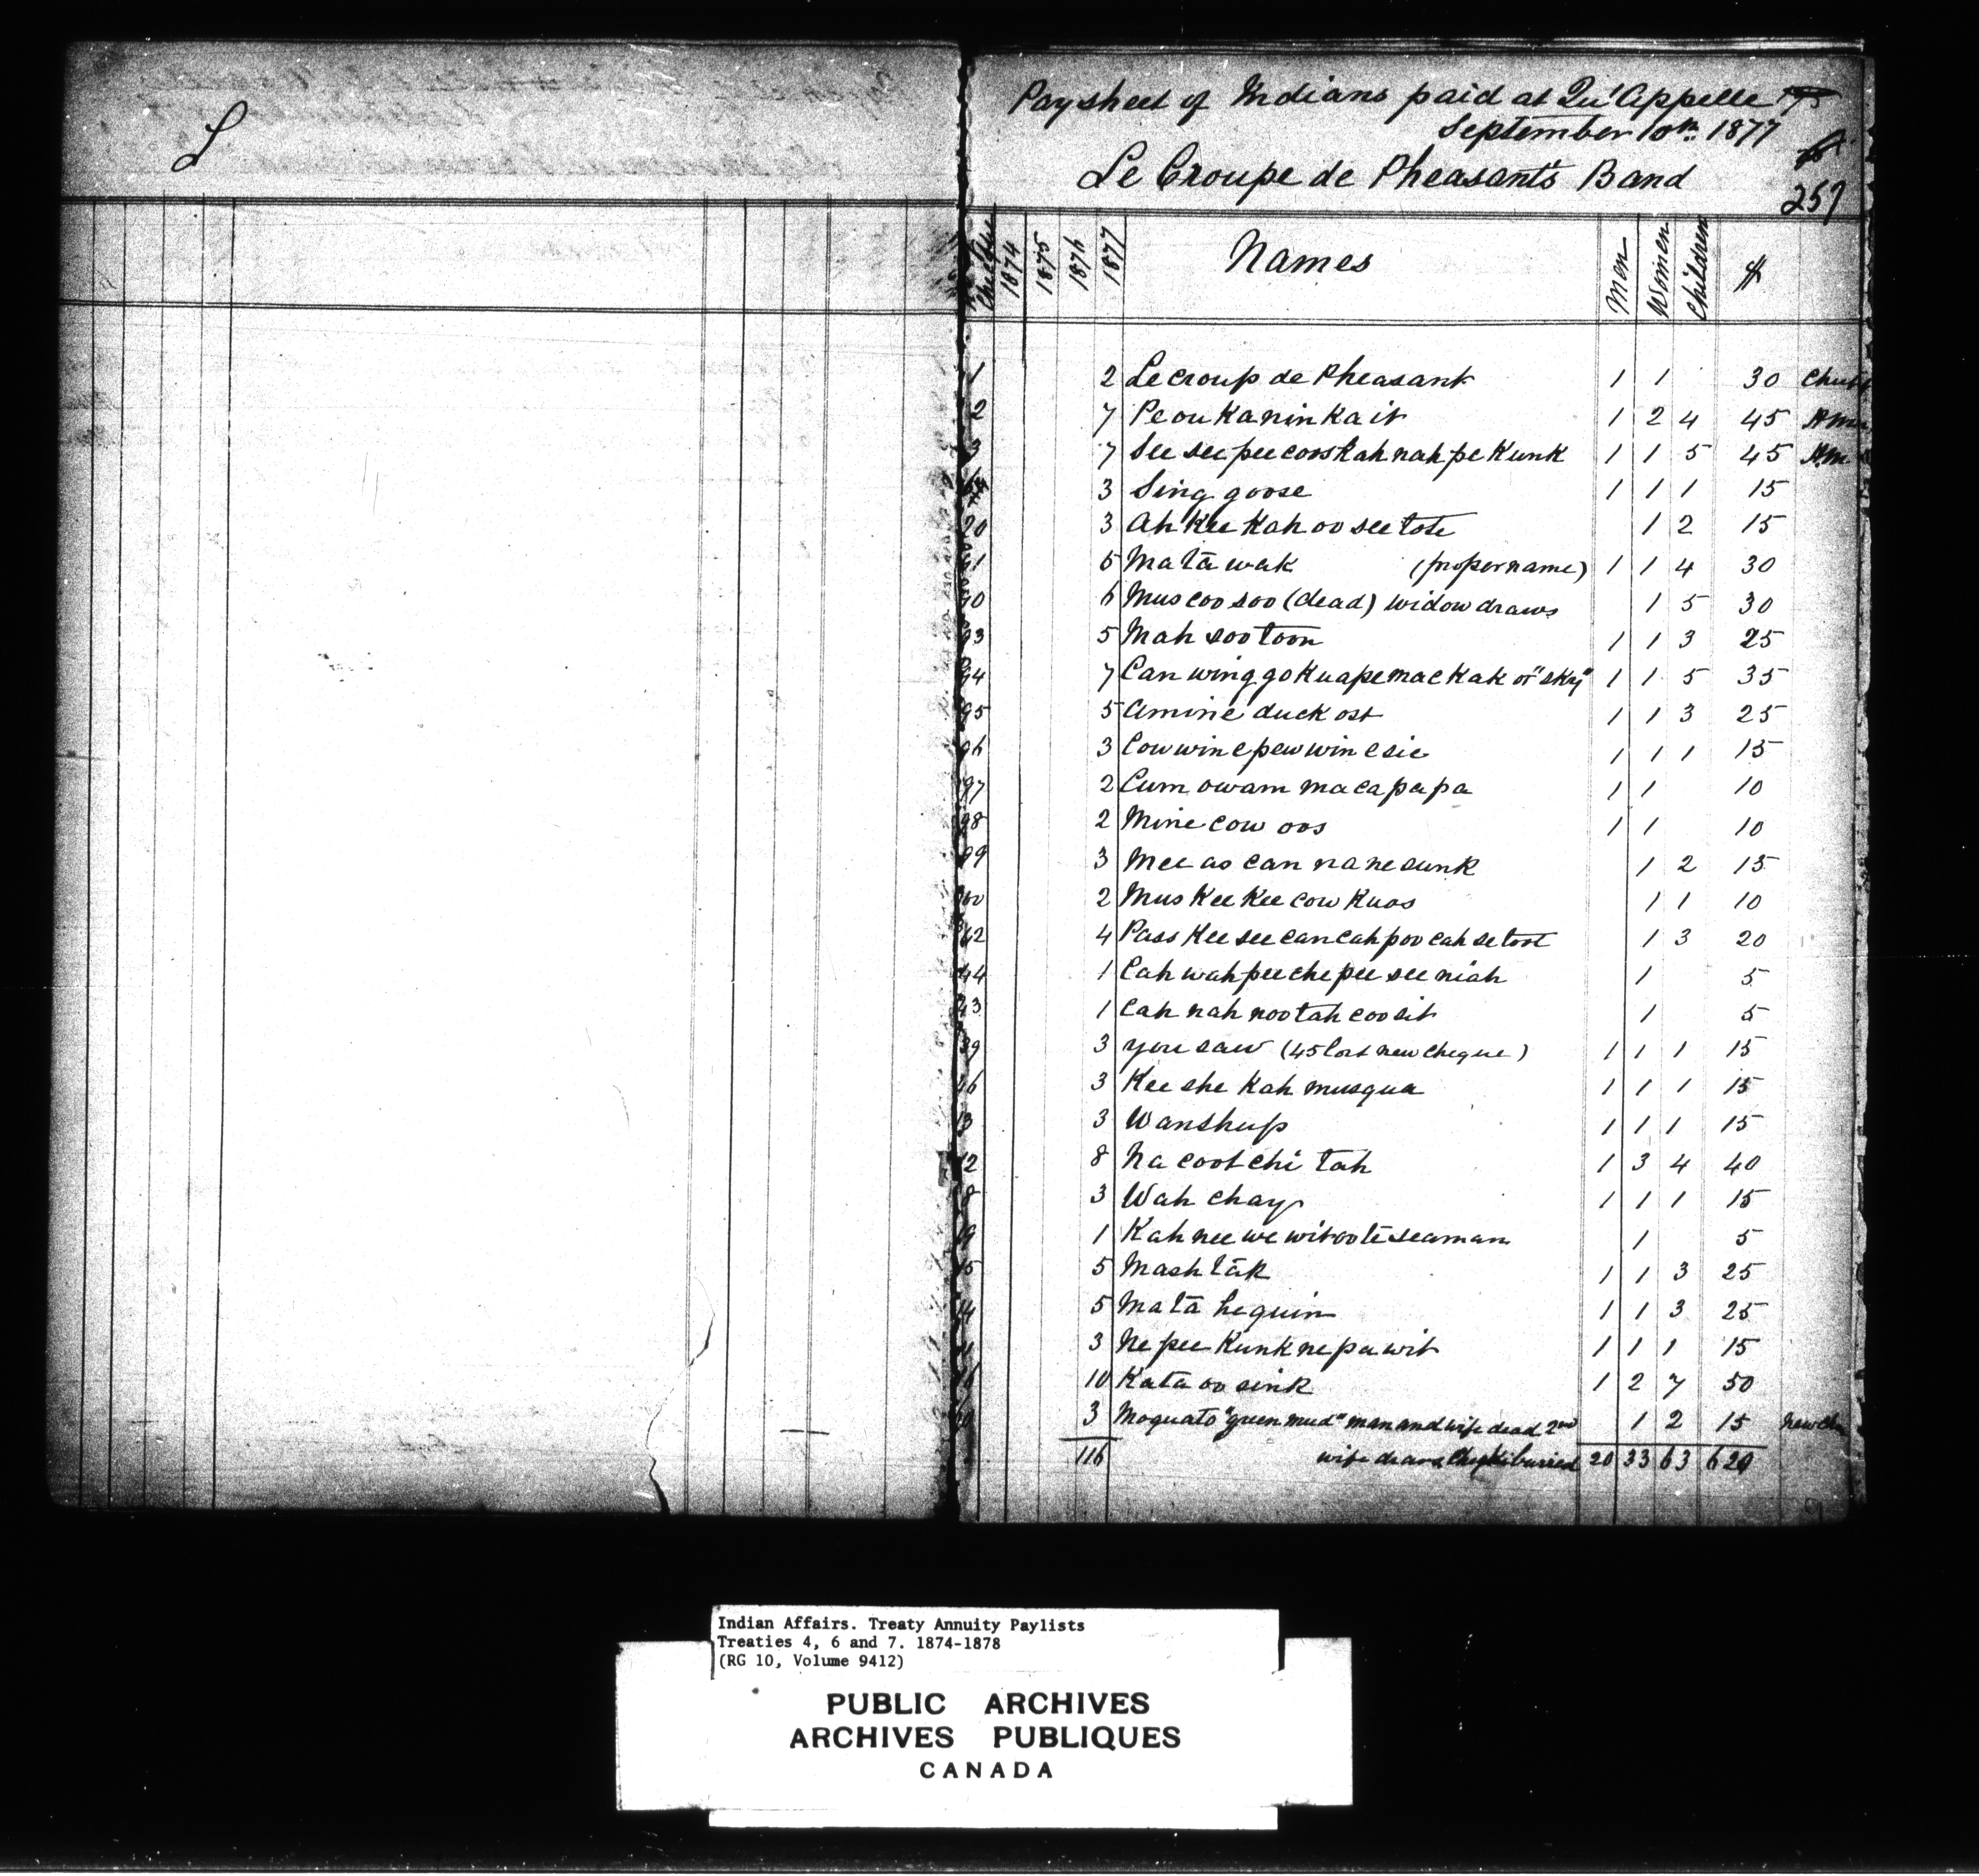 L
Paysheet of Indians paid at Qu'Appelle
September 10th 1877
Le Croupe de Pheasant's Band
257
Cheque 1874 1875 1876 1877 Names Men Women Children $
1 2 Le croup de Pheasant 1 1 30 Chief
2 7 Pe ou ka nin ka it 1 2 4 45 H.m
3 7 See see pee coos kah nah pe kunk 1 1 5 45 H.m
3 Sing goose 1 1 1 15
20 3 Ah kee kah oo see tose 1 2 15
5 Ma tā wak (proper name) 1 1 4 30
6 Mus coo soo (dead) widow draws 1 5 30
93 5 Mah soo toon 1 1 3 25
94 7 Can wing go kuape mac kak or "sky" 1 1 5 35
95 5 Amine duck ost 1 1 3 25
96 3 Cow wine pew win esic 1 1 1 15
97 2 Cum owam ma ca pa pa 1 1 10
98 2 Mine cow oos 1 1 10
99 3 Mee as can na ne sunk 1 2 15
2 Mus kee kee cow kuas 1 1 10
42 4 Pass kee see can cah poo cah se toot 1 3 20
44 1 Cah wah pee che pee see niah 1 5
43 1 Cah nah noo tah coo sit 1 5
39 3 you saw (45 lost new cheque) 1 1 1 15
16 3 Kee she kah musqua 1 1 1 15
13 3 Wanshup 1 1 1 15
12 8 Na coot chi tah 1 3 4 40
8 3 Wah chay 1 1 1 15
19 1 Kah nee we wit oo te seaman 1 5
15 5 Mash tāk 1 1 3 25
14 5 Ma tā hequin 1 1 3 25
11 3 Ne pee kunk ne pa wit 1 1 1 15
10 Katā oo sink 1 2 7 50
3 Moquato "green mud" man and wife dead 2nd 1 2 15 new Ch
116 wife draws Cheque buried 20 33 63 620
Indian Affairs. Treaty Annuity Paylists
Treaties 4, 6 and 7. 1874-1878
(RG 10, Volume 9412)
PUBLIC ARCHIVES
ARCHIVES PUBLIQUES
CANADA